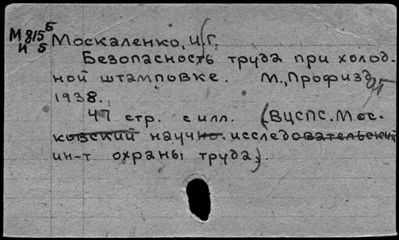 М 815 Б
И 5 Москаленко, И.Г.
Безопасность труда при холод-
ной штамповке. М., Профизд
1938.
47 стр. с илл. (ВЦСПС. Мос-
ковский научно-исследовательский
ин-т охраны труда).